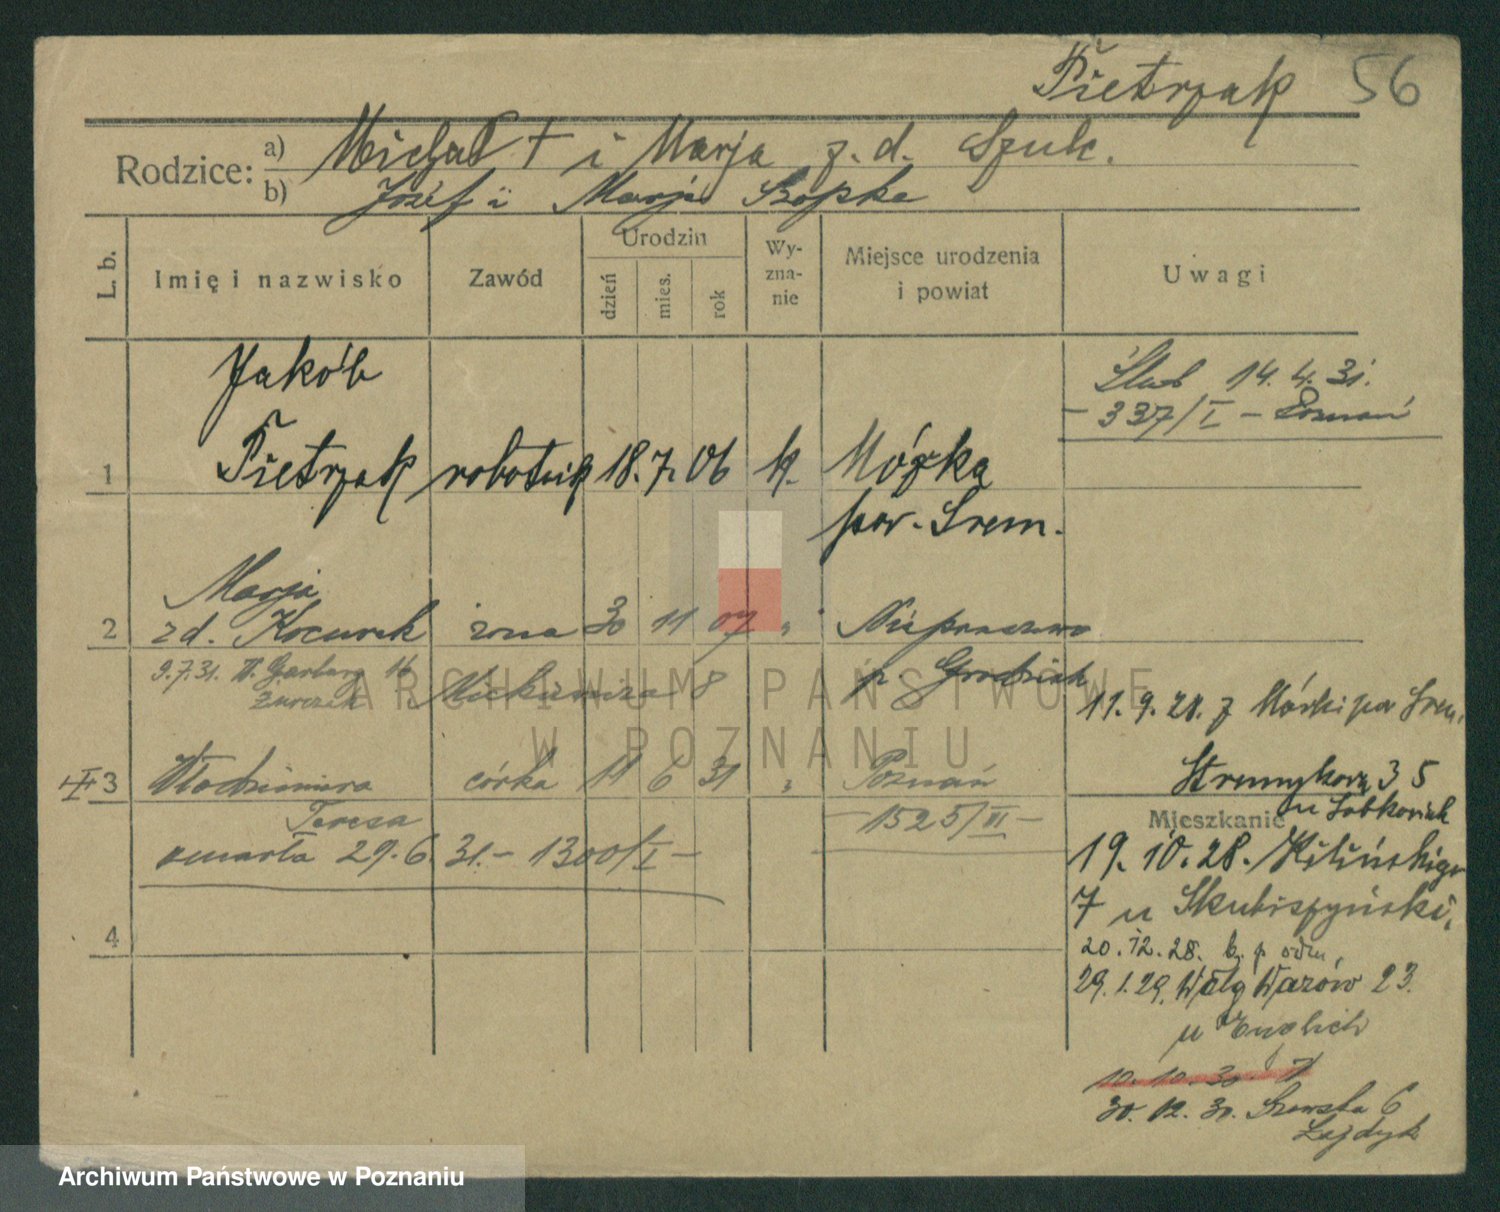 Pietrzak 56
Rodzice: a) Michał † i Marja z. d. Szulc.
b) Józef i Marja Szopka
L. b.
Imię i nazwisko
Zawód
Urodzin
dzień
mies.
rok
Wy-
zna-
nie
Miejsce urodzenia
i powiat
Uwagi
Ślub 14. 4. 31.
- 337/I - Poznań
Jakób
1 Pietrzak robotnik 18. 7. 06 k. Mórka
pow. Śrem.
Marja
2 zd. Kocurek żona 30 11 07 „ Niepruszewo
p. Grodzisk
9.7.31. W. Garbary 16
Mickiewicza 8
11. 9. 28. z Mórki pow Śrem.
3 Włodzimira córka 11 6 31 „ Poznań
Teresa
- 1525/III -
umarła 29. 6. 31. - 1300/I -
4
Strumykowa 35
u Sobkowiak
Mieszkanie
19. 10. 28. Kilińskiego
7 u Skubiszyński.
20. 12. 28. b. p. odm.
29. 1. 29. Wały Wazów 23.
u Englich
10. 10. 30.
30. 12. 30. Szewska 6
Łajdyk
ARCHIWUM PAŃSTWOWE
W POZNANIU
Archiwum Państwowe w Poznaniu